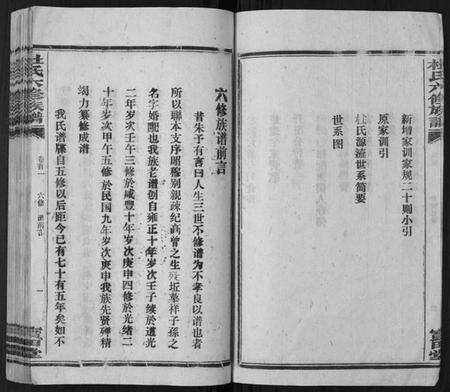 杜氏六修族譜
新增家训家规二十则小引
原家训引
杜氏源流世系简要
世系图
六修族谱前言
昔朱子有言曰人生三世不修谱为不孝良以谱也者
所以聯本支序昭穆别親疎纪高曾之生殁坵墓祥子孫之
名字婚配也我族老谱创自雍正十年岁次壬子续於道光
二年岁次壬午三修於咸豐十年岁次庚申四修於光绪二
十年岁次甲午五修於民国九年岁次庚申我族先贤殫精
竭力纂修成谱
我氏谱牒自五修以后距今已有七十有五年矣如不
杜氏六修族譜
卷首一
六修
谱前言
一